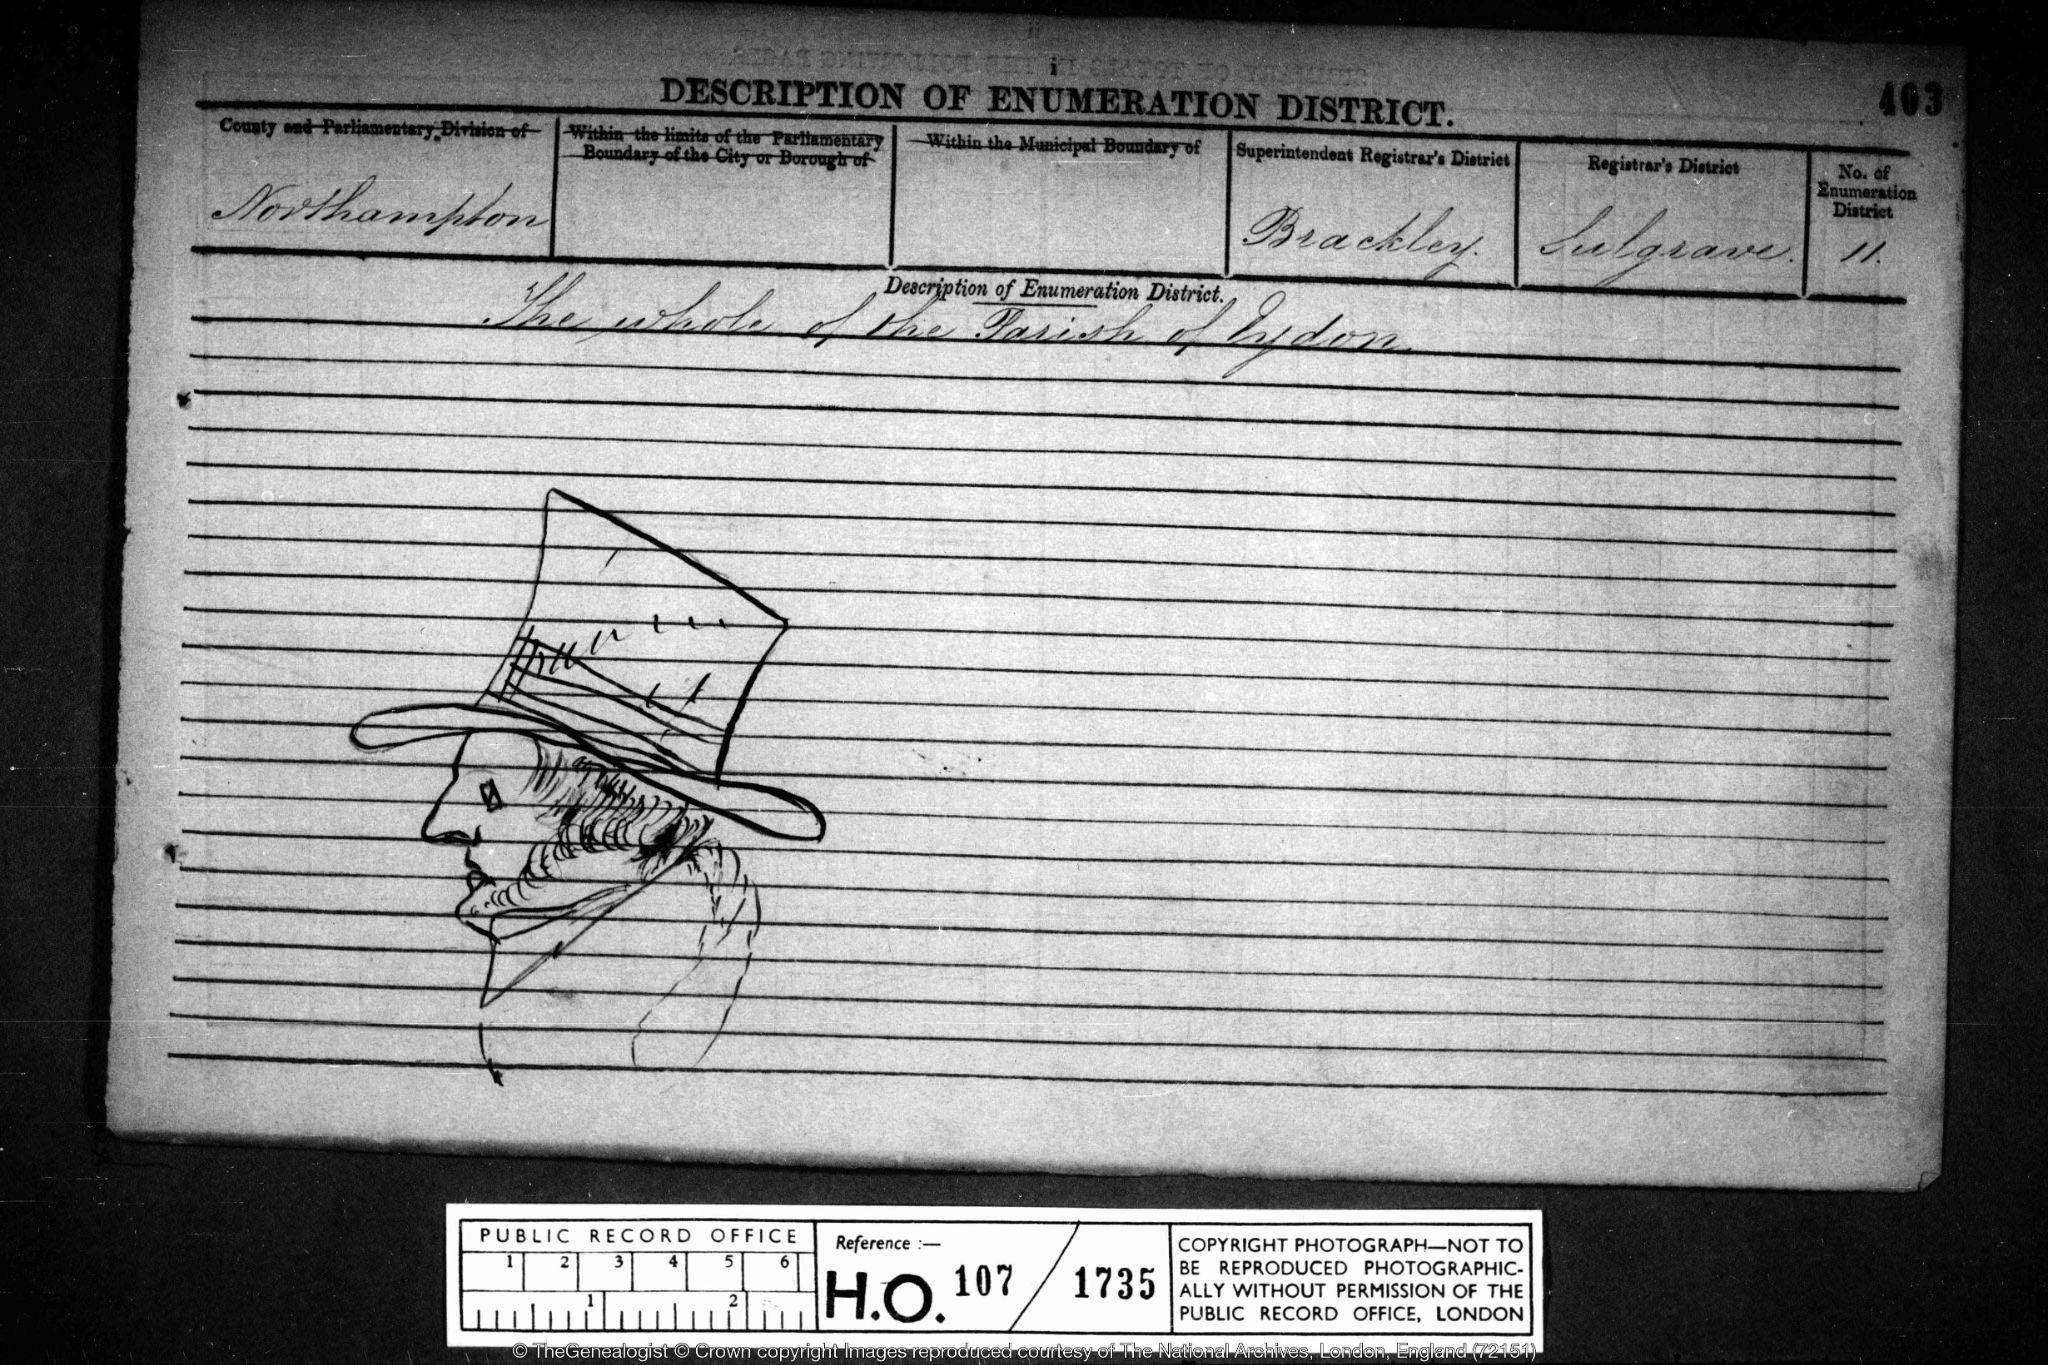 i
DESCRIPTION OF ENUMERATION DISTRICT.
403
County and Parliamentary Division of
Within the limits of the Parliamentary
Boundary of the City or Borough of
Within the Municipal Boundary of
Superintendent Registrar's District
Registrar's District
No. of
Enumeration
District
Northampton
Brackley.
Sulgrave.
11.
Description of Enumeration District.
The whole of the Parish of Eydon
PUBLIC RECORD OFFICE
1 2 3 4 5 6
1 2
Reference :—
H.O. 107 / 1735
COPYRIGHT PHOTOGRAPH—NOT TO
BE REPRODUCED PHOTOGRAPHIC-
ALLY WITHOUT PERMISSION OF THE
PUBLIC RECORD OFFICE, LONDON
© TheGenealogist © Crown copyright Images reproduced courtesy of The National Archives, London, England (72151)